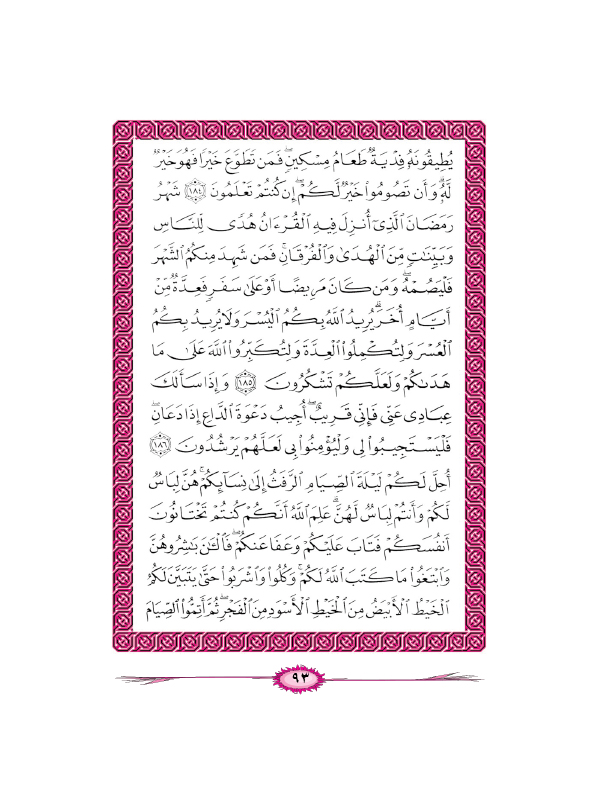 يُطِيقُونَهُۥ فِدْيَةٌ طَعَامُ مِسْكِينٍۖ فَمَن تَطَوَّعَ خَيْرًا فَهُوَ خَيْرٌ
لَّهُۥۚ وَأَن تَصُومُوا۟ خَيْرٌ لَّكُمْۖ إِن كُنتُمْ تَعْلَمُونَ ١٨٤ شَهْرُ
رَمَضَانَ ٱلَّذِىٓ أُنزِلَ فِيهِ ٱلْقُرْءَانُ هُدًى لِّلنَّاسِ
وَبَيِّنَـٰتٍ مِّنَ ٱلْهُدَىٰ وَٱلْفُرْقَانِۚ فَمَن شَهِدَ مِنكُمُ ٱلشَّهْرَ
فَلْيَصُمْهُۖ وَمَن كَانَ مَرِيضًا أَوْ عَلَىٰ سَفَرٍ فَعِدَّةٌ مِّنْ
أَيَّامٍ أُخَرَۗ يُرِيدُ ٱللَّهُ بِكُمُ ٱلْيُسْرَ وَلَا يُرِيدُ بِكُمُ
ٱلْعُسْرَ وَلِتُكْمِلُوا۟ ٱلْعِدَّةَ وَلِتُكَبِّرُوا۟ ٱللَّهَ عَلَىٰ مَا
هَدَىٰكُمْ وَلَعَلَّكُمْ تَشْكُرُونَ ١٨٥ وَإِذَا سَأَلَكَ
عِبَادِى عَنِّى فَإِنِّى قَرِيبٌۖ أُجِيبُ دَعْوَةَ ٱلدَّاعِ إِذَا دَعَانِۖ
فَلْيَسْتَجِيبُوا۟ لِى وَلْيُؤْمِنُوا۟ بِى لَعَلَّهُمْ يَرْشُدُونَ ١٨٦
أُحِلَّ لَكُمْ لَيْلَةَ ٱلصِّيَامِ ٱلرَّفَثُ إِلَىٰ نِسَآئِكُمْۚ هُنَّ لِبَاسٌ
لَّكُمْ وَأَنتُمْ لِبَاسٌ لَّهُنَّۗ عَلِمَ ٱللَّهُ أَنَّكُمْ كُنتُمْ تَخْتَانُونَ
أَنفُسَكُمْ فَتَابَ عَلَيْكُمْ وَعَفَا عَنكُمْۖ فَٱلْـَٔـٰنَ بَـٰشِرُوهُنَّ
وَٱبْتَغُوا۟ مَا كَتَبَ ٱللَّهُ لَكُمْۚ وَكُلُوا۟ وَٱشْرَبُوا۟ حَتَّىٰ يَتَبَيَّنَ لَكُمُ
ٱلْخَيْطُ ٱلْأَبْيَضُ مِنَ ٱلْخَيْطِ ٱلْأَسْوَدِ مِنَ ٱلْفَجْرِۖ ثُمَّ أَتِمُّوا۟ ٱلصِّيَامَ
٩٣